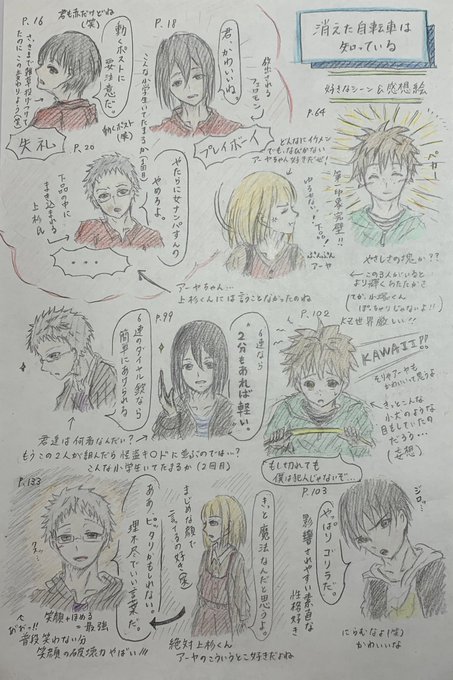 消えた自転車は
知っている
好きなシーン&感想絵
P.18
君、かわいいね。
放出される
フェロモン
こんな小学生いてたまるか(1回目)
プレイボーイ
P.16
君も赤だけどね
(笑)
動くポストに
要注意だ。
動くポスト
(笑)
失礼
P.20
やたらに女ナンパすんの
やめろよ。
下品の中に
まき込まれる
上杉氏
・・・
アーヤちゃん…
上杉くんには言うことなかったのね
どんなにイケメン
でも、なびかない
アーヤちゃん好きだぜ!
ゆるせない!
下品!
ぷんぷん
アーヤ
P.64
ペカー
第一印象完璧!!
やさしさの塊か??
←この3人がいると
より輝くわたかさ
てか小塚くん
ぽっちゃりじゃないよ!!
KZ世界厳しい!!
P.99
6連なら
2分もあれば軽い。
6連のダイヤル錠なら
簡単にあけられる
君達は何者なんだい?
もうこの2人が組んだら怪盗キッドに並ぶのでは…?
こんな小学生いてたまるか(2回目)
P.102
KAWAII!!
そりゃアーヤも
かわいいって思うよ
←きっとこんな
小犬のような
目もしていたの
だろう…
(妄想)
もし切れても
僕は犯人じゃないぞ…
P.103
ジロ…
やっぱりゴリラだ。
影響されやすい素直な
性格好き
にらむなよ(笑)
かわいいな
きっと魔法なんだと思うよ。
まじめな顔で
言ってるの好き(笑)
絶対上杉くん
アーヤのこういうとこ好きだよね
P.133
ああ、ピッタリかもしれない。
理不尽でいい言葉だ。
笑顔+ほめる
=最強
普段笑わない分
笑顔の破壊力やばい!!!